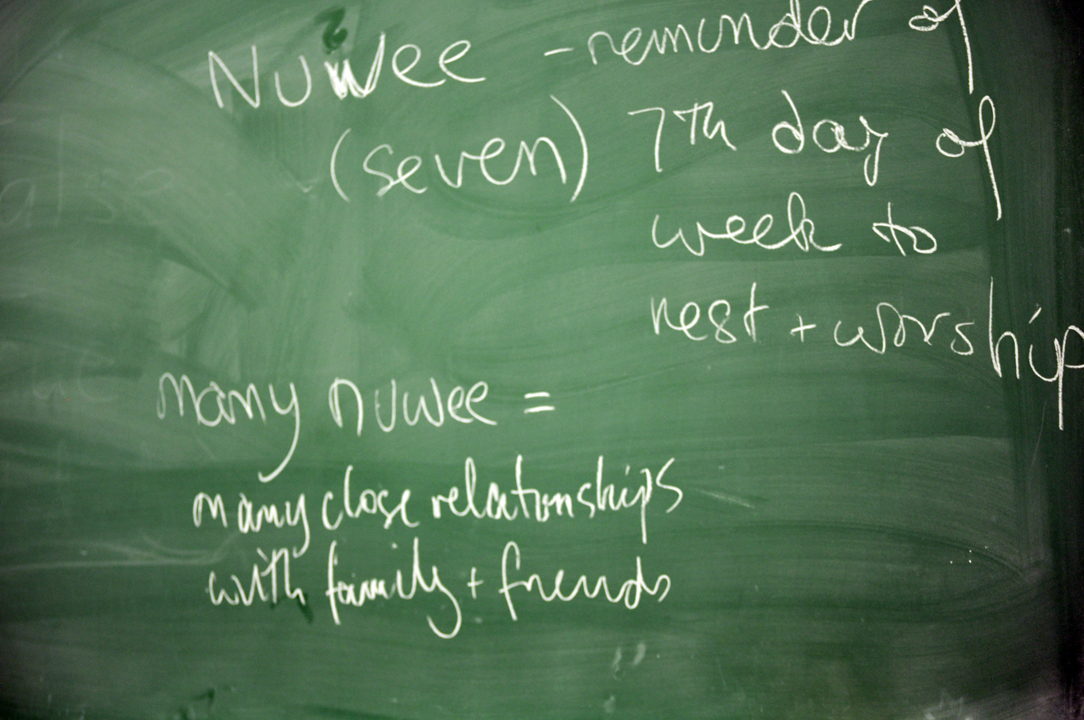 Nuwee - reminder of
(seven) 7th day of
week to
rest + worship
many nuwee =
many close relationships
with family + friends